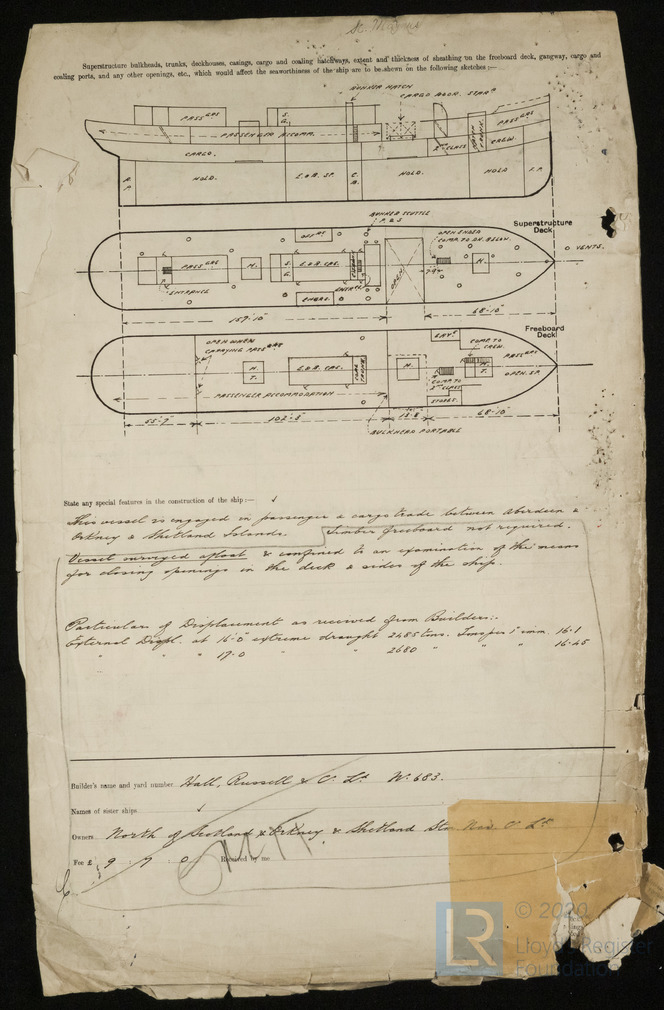 St. Magnus
Superstructure bulkheads, trunks, deckhouses, casings, cargo and coaling hatchways, extent and thickness of sheathing on the freeboard deck, gangway, cargo and
coaling ports, and any other openings, etc., which would affect the seaworthiness of the ship are to be shewn on the following sketches :—
BUNKER HATCH
CARGO DOOR. STARD
PASSGRS
S.
G.
PASSGRS
PASSENGER ACCOMM.
2ND CLASS
HATCH TRUNK
CREW
CARGO.
A.P.
HOLD.
E. & B. SP.
C.B.
HOLD.
HOLD
F.P.
BUNKER SCUTTLE
P. & S
Superstructure
Deck
OPEN ENDED
COMP. TO DK. BELOW.
VENTS.
PASSGRS
H.
S.
G.
E. & B. CAS.
OPEN
H.
ENTRANCE
ENTRCE
ENGRS.
159'-10"
68'-10"
Freeboard
Deck
OPEN WHEN
CARRYING PASSGRS
LAVY
COMP. TO
CREW.
H.
T.
E. & B. CAS.
H.
H.
T.
PASSGRS
OPEN. SP.
PASSENGER ACCOMMODATION
COMP. TO
2ND CLASS
STORES.
55'-7"
102'-3"
68'-10"
BULKHEAD PORTABLE
State any special features in the construction of the ship :—
This vessel is engaged in passenger & cargo trade between Aberdeen &
Orkney & Shetland Islands. Timber freeboard not required.
Vessel surveyed afloat & confined to an examination of the means
for closing openings in the deck & sides of the ship.
Particulars of Displacement as received from Builders:-
External Displ. at 16'-0" extreme draught 2485 tons. Tons per 1" imm. 16.1
" " 17-0 " " 2680 " " " 16.45
Builder's name and yard number Hall, Russell & Co. Ld. No. 683.
Names of sister ships
Owners North of Scotland & Orkney & Shetland Stm Nav. Co. Ld.
Fee £ 9 : 9 : 0 Received by me
LR
© 2020
Lloyd's Register
Foundation